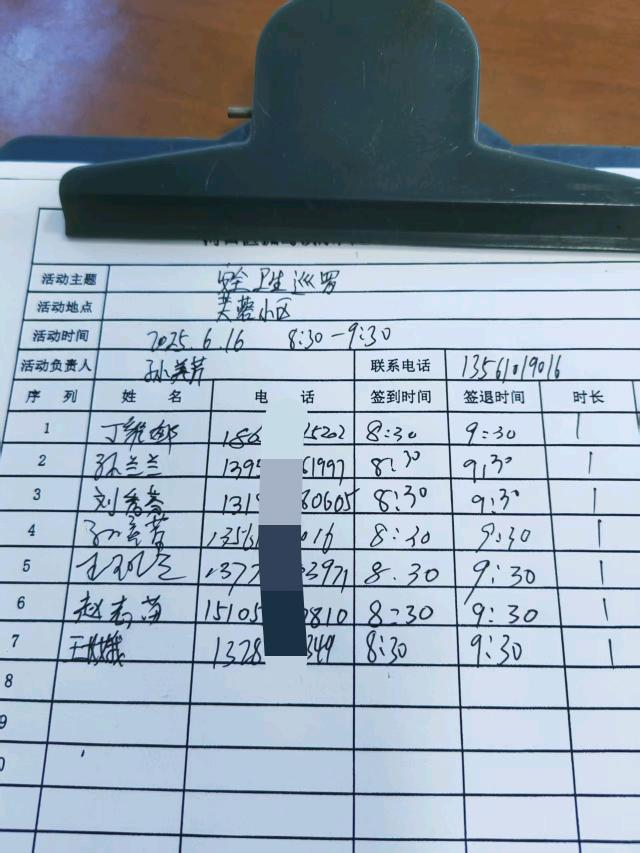 活动主题 安全卫生巡罗
活动地点 芙蓉小区
活动时间 2025.6.16 8:30-9:30
活动负责人 联系电话 13561019016
序列 姓名 电话 签到时间 签退时间 时长
1 186 15202 8:30 9:30 1
2 孙兰兰 1395 61997 8:30 9:30 1
3 131 80605 8:30 9:30 1
4 13561 016 8:30 9:30 1
5 1377 03971 8:30 9:30 1
6 赵志苗 15105 0810 8:30 9:30 1
7 1328 349 8:30 9:30 1
8
9
0